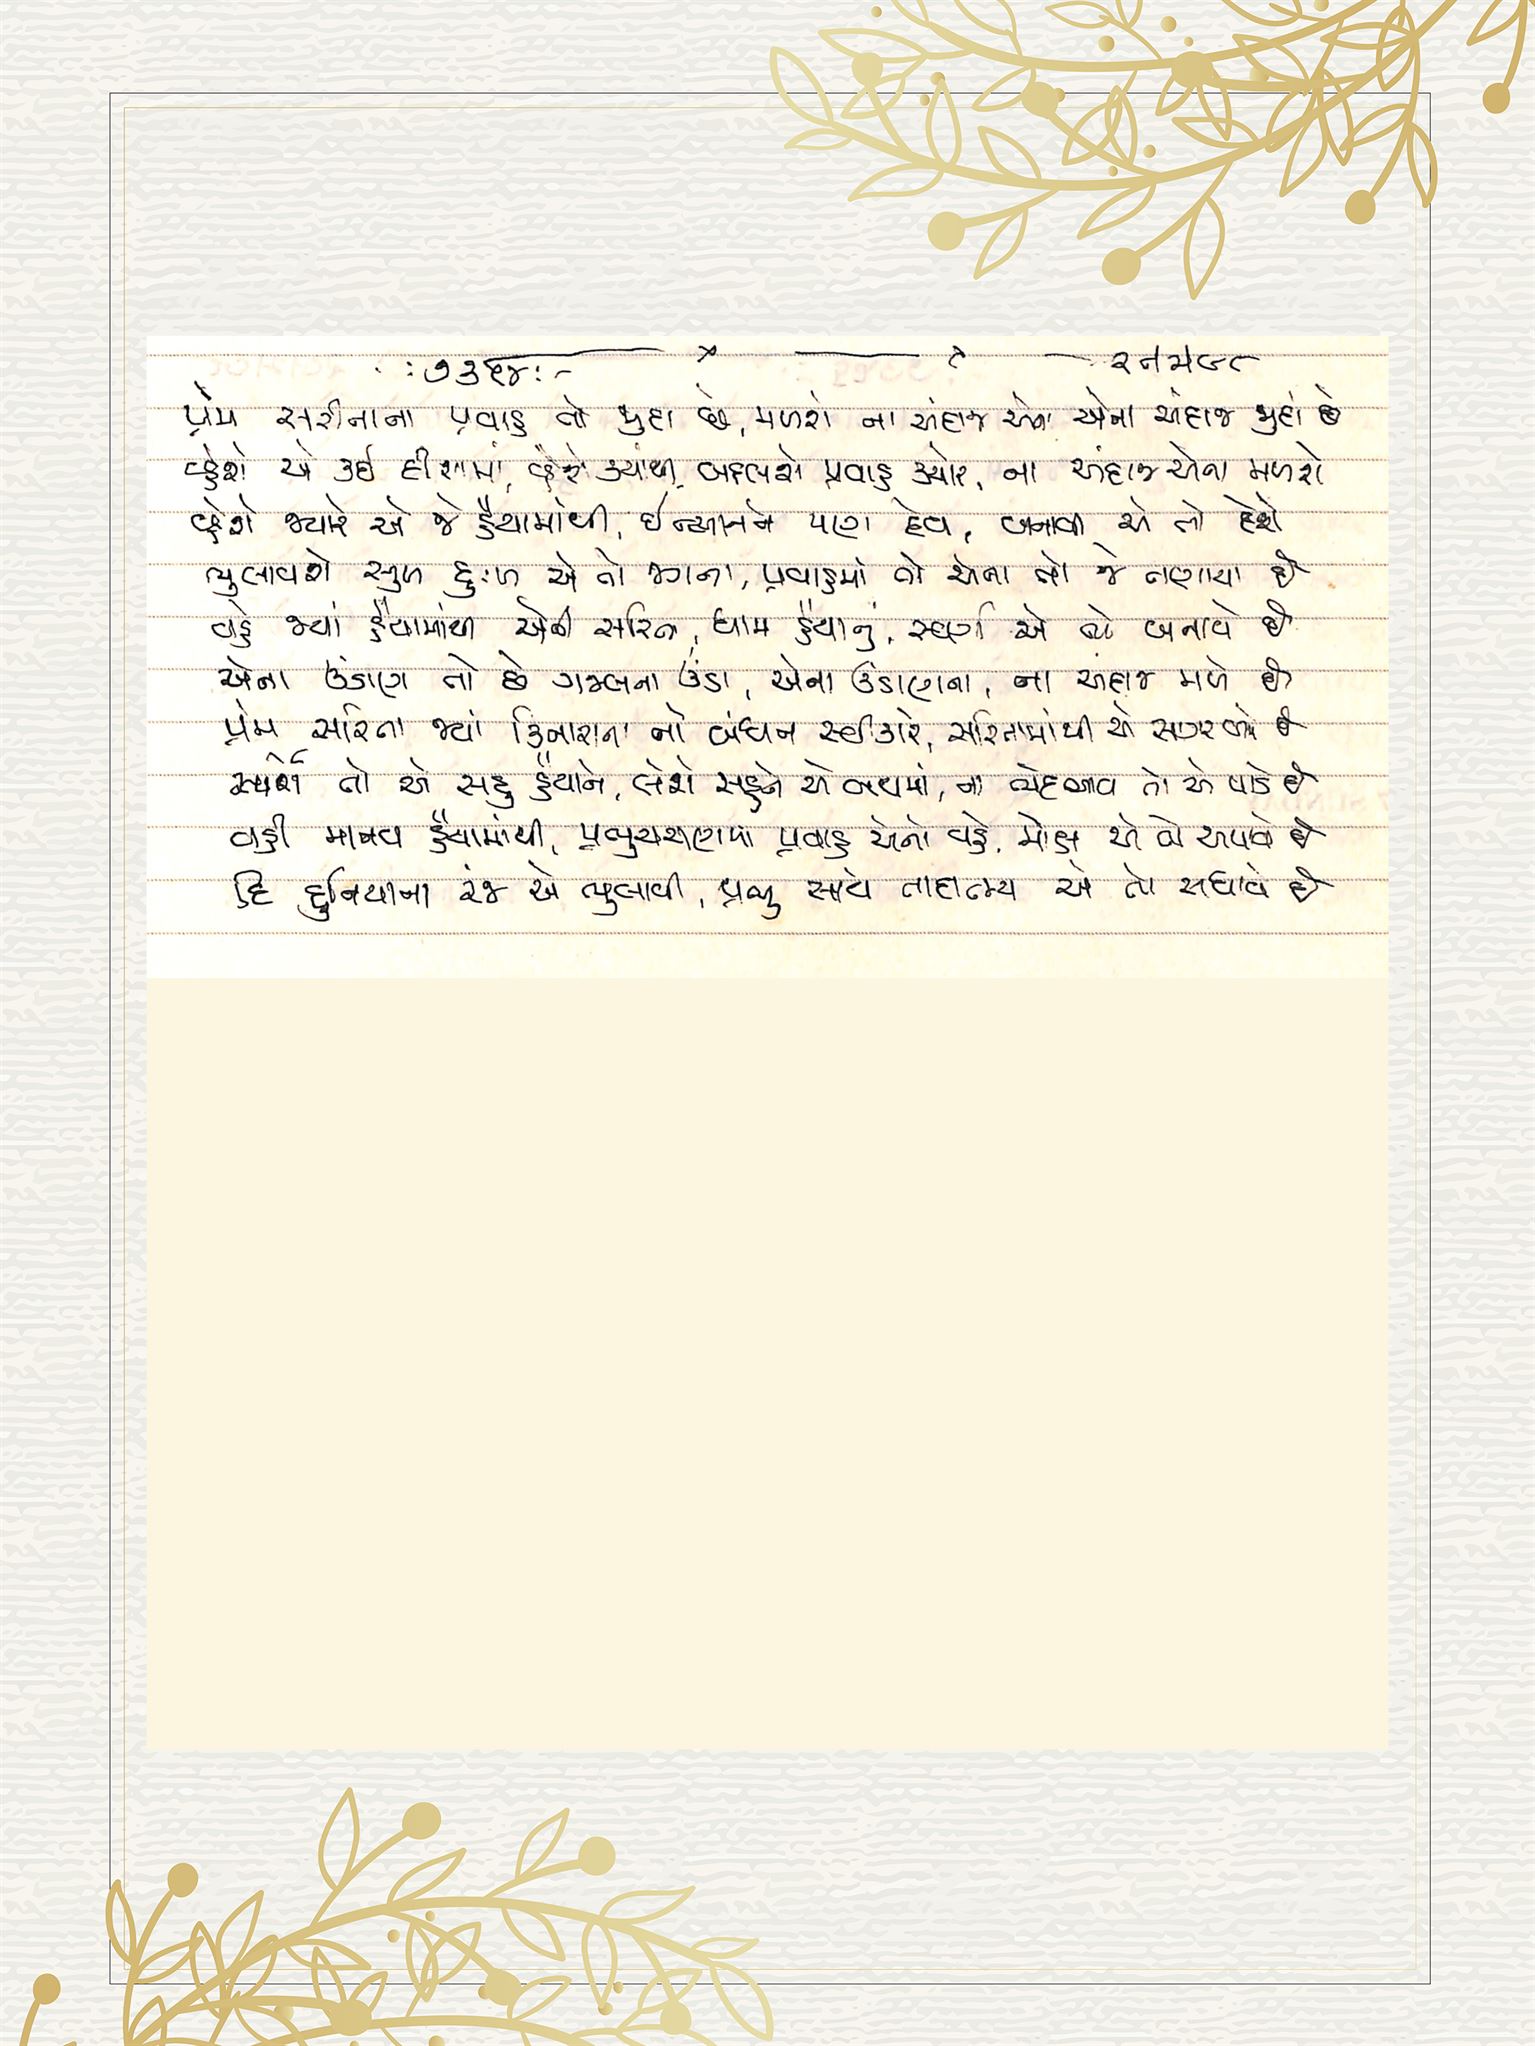 :૭૩૬૪:- x
પ્રેમ સરીતાના પ્રવાહ તો જુદા છે, મળશે ના અંદાજ એના એના અંદાજ જુદાં છે
વ્હેશે એ કઈ દીશામાં, વ્હેશે ક્યાંથી, બદલશે પ્રવાહ ક્યારે, ના અંદાજ એના મળશે
વ્હેશે જ્યારે એ જે હૈયામાંથી, ઈન્સાનને પણ દેવ, બનાવી એ તો દેશે
ભુલાવશે સુખ દુઃખ એ તો જગના, પ્રવાહમાં તો એના તો જે તણાયા છે
વહે જ્યાં હૈયામાંથી એની સરિતા, ધામ હૈયાનું, સ્વર્ગ એ તો બનાવે છે
એના ઉંડાણ તો છે ગજબના ઉંડા, એના ઉંડાણના, ના અંદાજ મળે છે
પ્રેમ સરિતા જ્યાં કિનારાના નો બંધન સ્વીકારે, સરિતામાંથી એ સાગર બને છે
સ્પર્શે તો એ સહુ હૈયાને, લેશે સહુને એ બાથમાં, ના ભેદભાવ તો એ પાડે છે
વહી માનવ હૈયામાંથી, પ્રભુચરણમાં પ્રવાહ એનો વહે, મોક્ષ એ તો અપાવે છે
હિ દુનિયાના રંજ એ ભુલાવી, પ્રભુ સાથે તાદાત્મ્ય એ તો સધાવે છે